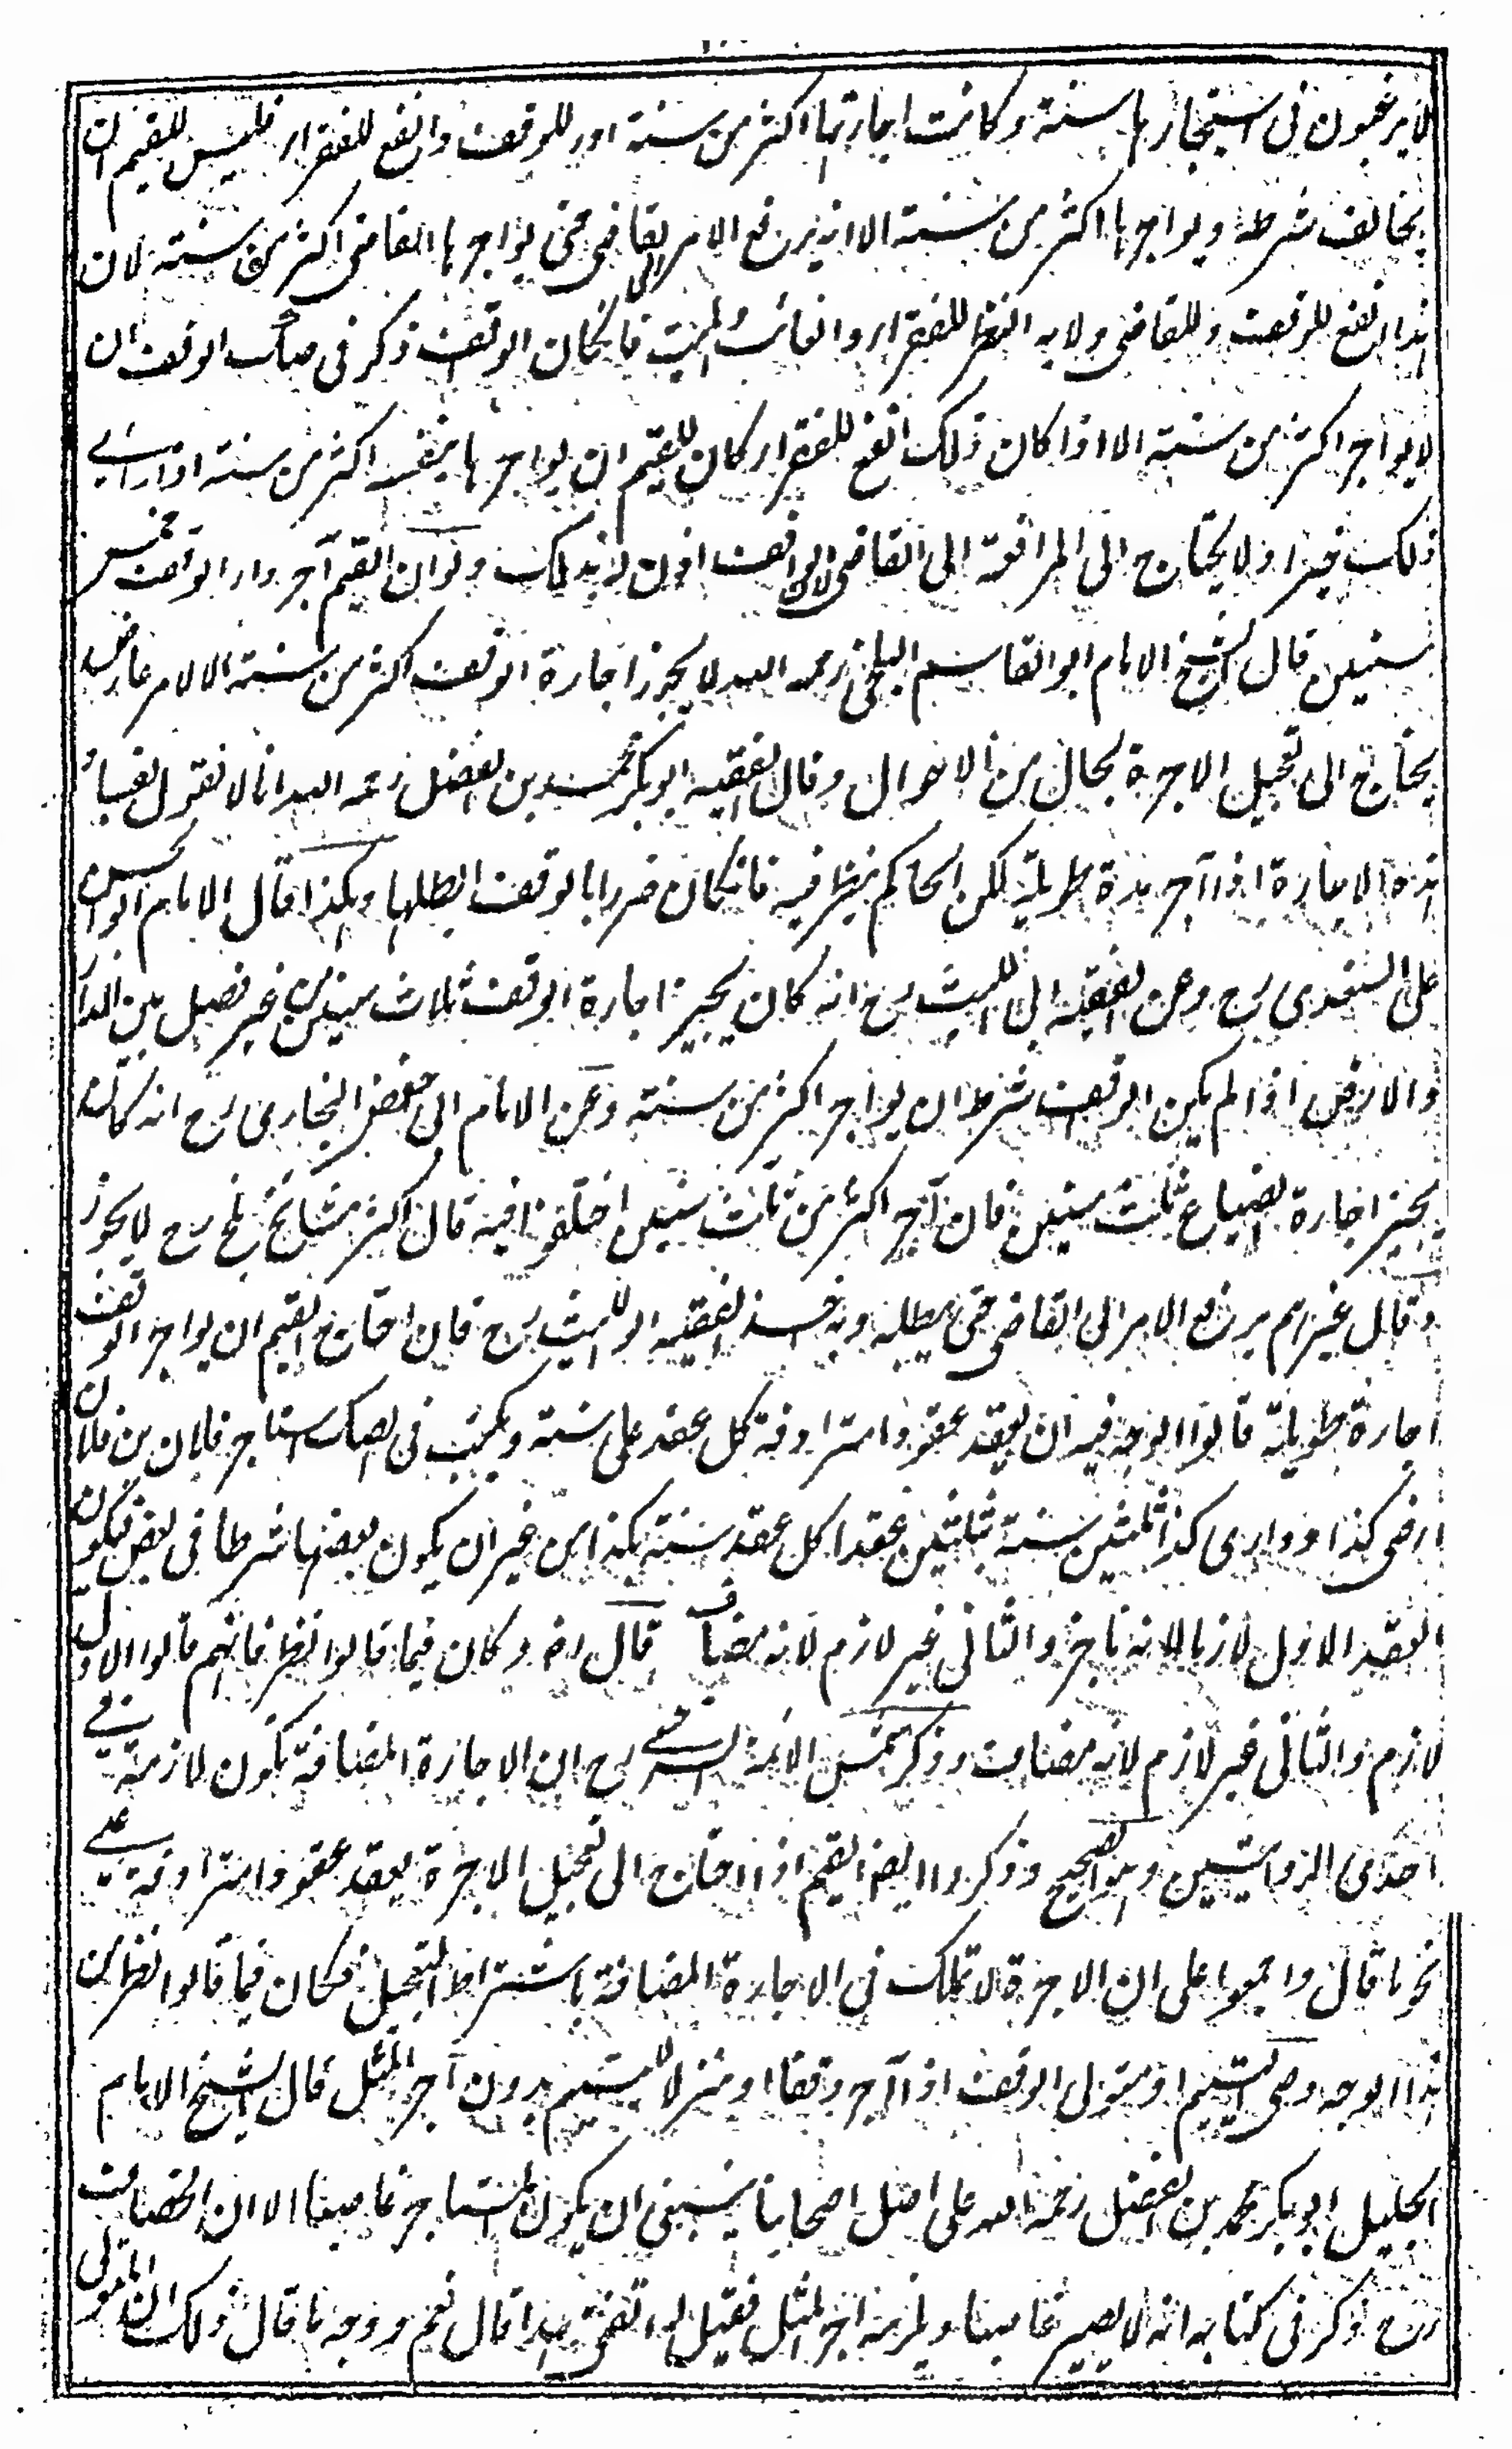 لا يرغبون فى استيجارها سنة وكانت اجارتها اكثر من سنة ادر للوقف وانفع للفقراء فليس للقيم ان
يخالف شرطه ويواجرها اكثر من سنة الا انه يرفع الامر الى القاضى حتى يواجرها القاضى اكثر من سنة لان
هذا انفع للوقف وللقاضى ولاية النظر للفقراء والغائب والميت فان كان الواقف ذكر فى صك الوقف ان
لا يواجر اكثر من سنة الا اذا كان ذلك انفع للفقراء كان للقيم ان يواجرها بنفسه اكثر من سنة اذا راى
ذلك خيرا ولا يحتاج الى المرافعة الى القاضى لان الواقف اذن له بذلك ولو ان القيم آجر دار الوقف خمس
سنين قال الشيخ الامام ابو القاسم البلخى رحمه الله لا يجوز اجارة الوقف اكثر من سنة الا لامر عارض
يحتاج الى تعجيل الاجرة بحال من الاحوال وقال الفقيه ابو بكر محمد بن الفضل رحمه الله انا لا نقول بفساد
هذه الاجارة اذا آجر مدة طويلة لكن الحاكم ينظر فيه فان كان ضررا بالوقف ابطلها وهكذا قال الامام ابو الحسن
على السغدى رح وعن الفقيه ابى الليث رح انه كان يجيز اجارة الوقف ثلاث سنين من غير فصل بين الدار
والارض اذا لم يكن الواقف شرط ان يواجر اكثر من سنة وعن الامام ابى حفص البخارى رح انه كان
يجيز اجارة الضياع ثلث سنين فان آجر اكثر من ثلث سنين اختلفوا فيه قال اكثر مشائخ بلخ رح لا يجوز
وقال غيرهم يرفع الامر الى القاضى حتى يبطله وبه اخذ الفقيه ابو الليث رح فان احتاج القيم ان يواجر الوقف
اجارة طويلة قالوا الوجه فيه ان يعقد عقودا مترادفة كل عقد على سنة ويكتب فى الصك استاجر فلان بن فلان
ارض كذا او دارى كذا ثلثين سنة بثلثين عقدا كل عقد سنة بكذا من غير ان يكون بعضها شرطا فى بعض فيكون
العقد الاول لازما لانه ناجز والثانى غير لازم لانه مضاف قال رض وكان فيما قالوا نظر فانهم قالوا الاول
لازم والثانى غير لازم لانه مضاف وذكر شمس الائمة السرخسى رح ان الاجازة المضافة تكون لازمة فى
احدى الروايتين وهو الصحيح وذكروا ايضا القيم اذا احتاج الى تعجيل الاجرة يعقد عقودا مترادفة على
نحو ما قال واجمعوا على ان الاجرة لا تملك فى الاجارة المضافة باشتراط التعجيل فكان فيما قالوا نظر من
هذا الوجه وصى اليتيم او متولى الوقف اذا آجر وقفا او منزلا لليتيم بدون آجر المثل قال الشيخ الامام
الجليل ابو بكر محمد بن الفضل رحمه الله على اصل اصحابنا ينبغى ان يكون المستاجر غاصبا الا ان الخصاف
رح ذكر فى كتابه انه لا يصير غاصبا ويلزمه اجر المثل فقيل له اتفتى بهذا قال نعم ووجه ما قال ذلك ان المتولى